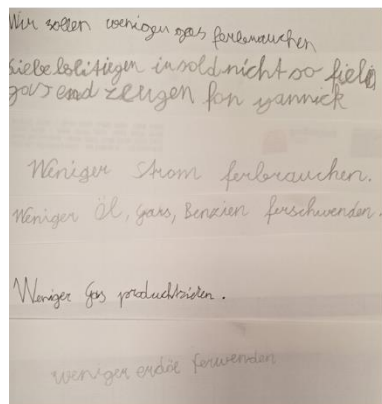 Wir sollen weniger gas ferbrauchen
liebe politiger in sold nicht so fiel
gas end zeugen fon yannick
Weniger Strom ferbrauchen.
Weniger Öl, Gars, Benzien ferschwenden.
Weniger Gas producktsiren.
weniger erdöl ferwenden